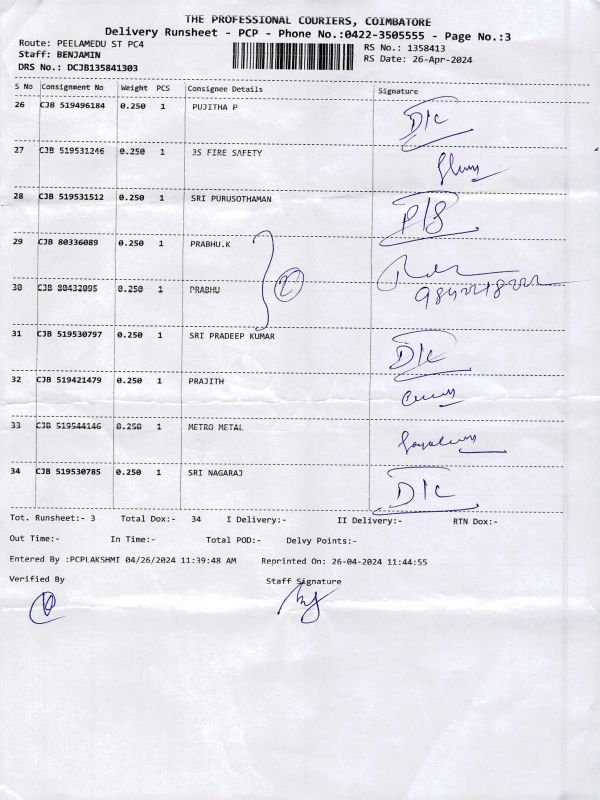 THE PROFESSIONAL COURIERS, COIMBATORE
Delivery Runsheet - PCP - Phone No.:0422-3505555 - Page No.:3
Route: PEELAMEDU ST PC4
RS No.: 1358413
Staff: BENJAMIN
RS Date: 26-Apr-2024
DRS No.: DCJB135841303
S No Consignment No Weight PCS Consignee Details Signature
26 CJB 519496184 0.250 1 PUJITHA P D/c
27 CJB 519531246 0.250 1 3S FIRE SAFETY
28 CJB 519531512 0.250 1 SRI PURUSOTHAMAN P/8
29 CJB 80336089 0.250 1 PRABHU.K
30 CJB 80432095 0.250 1 PRABHU 2
31 CJB 519530797 0.250 1 SRI PRADEEP KUMAR D/c
32 CJB 519421479 0.250 1 PRAJITH
33 CJB 519544146 0.250 1 METRO METAL
34 CJB 519530785 0.250 1 SRI NAGARAJ D/c
Tot. Runsheet:- 3 Total Dox:- 34 I Delivery:- II Delivery:- RTN Dox:-
Out Time:- In Time:- Total POD:- Delvy Points:-
Entered By :PCPLAKSHMI 04/26/2024 11:39:48 AM Reprinted On: 26-04-2024 11:44:55
Verified By Staff Signature